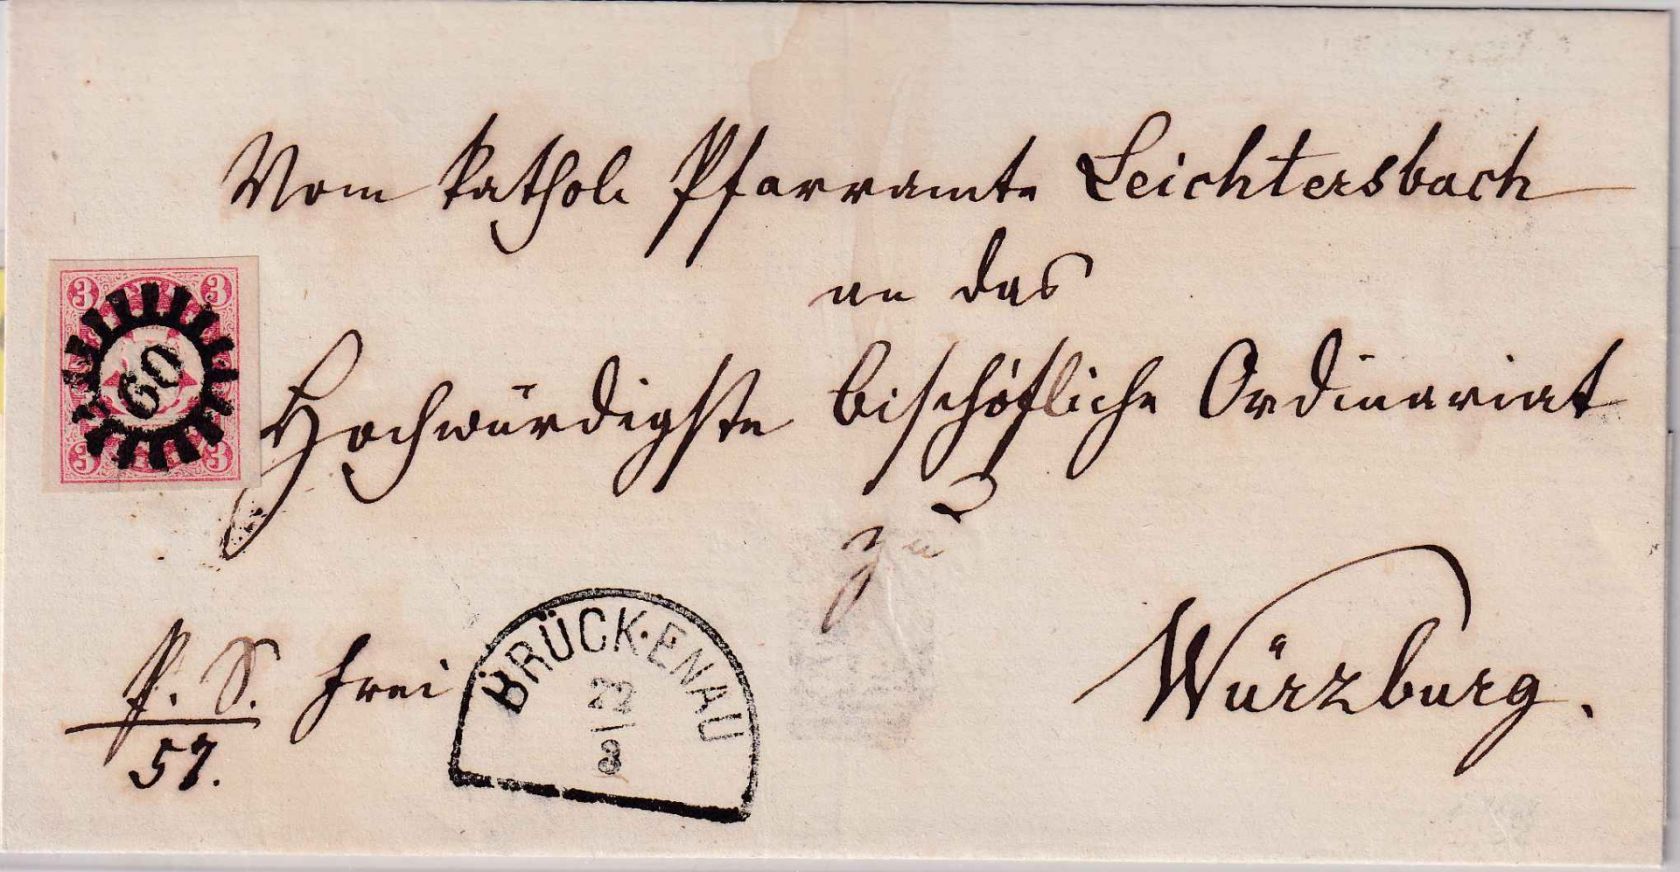 Vom kathol. Pfarramte Leichtersbach
an das
Hochwürdigste bischöfliche Ordinariat
zu
Würzburg.
3 3
60
3 3
P. S. frei
57.
BRÜCK·ENAU
22
3